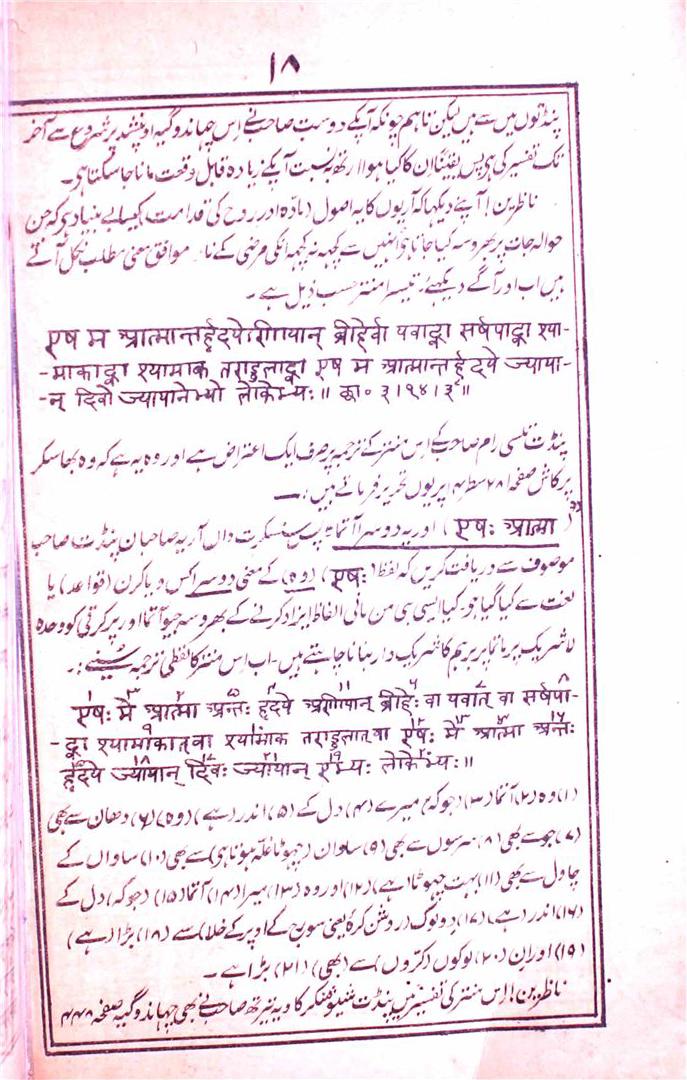 ۱۸
پنڈتوں میں سے ہیں لیکن تاہم چونکہ آپکے دوست صاحب نے اِس چہاندوگیہ اوپنشد پر شروع سے آخر
تک تفسیر کی ہی پس یقیناً اِن کا کیا ہوا ارتھ بہ نسبت آپکے زیادہ قابل وقعت مانا جا سکتا ہی۔
ناظرین! آپنے دیکہا کہ آریوں کا یہ اصول (مادّہ اور روح کی قدامت) کیسا بے بنیاد ہی کہ جن
حوالہ جات پر بھروسہ کیا جاتا ہی اُنہیں سے کچہہ نہ کچہہ انکی مرضی کے نا موافق معنی مطلب نکل آتے
ہیں اب اور آگے دیکھئے، تیسرا منتر حسب ذیل ہے۔
एष म आत्मान्तर्हृदयेऽणीयान् ब्रीहेर्वा यवाद्वा सर्षपाद्वा श्या-
-माकाद्वा श्यामाक तराडुलाद्वा एष म आत्मान्तर्हृदये ज्याया-
-न् दिवो ज्यापानेभ्यो लोकेभ्यः॥ छा॰ ३।१४।३॥
پنڈت تلسی رام صاحب کے اِس منتر کے ترجمہ پر صرف ایک اعتراض ہے اور وہ یہ ہے کہ وہ بھاسکر
پرکاش صفحہ ۲۸۱ سطر ۴ اپر یوں تحریر فرماتے ہیں:—
(एषः आत्मा) اور یہ دوسرا آتما" پس سنسکرت داں آریہ صاحبان پنڈت صاحب
موصوف سے دریافت کریں کہ لفظ (एषः) (وہ) کے معنی دوسرا کس ویاکرن (قواعد) یا
لغت سے کیا گیا ہی۔ کیا ایسی ہی من مانی الفاظ ایزاد کرنے کے بھروسہ جیو آتما اور پرکرتی کو وحدہ
لا شریک پرماتما پر برہم کا شریک دار بنانا چاہتے ہیں۔ اب اِس منتر کا لفظی ترجمہ سُنیے:۔
एषः मे आत्मा अन्तः हृदये अणीयान् ब्रीहेः वा यवात् वा सर्षपा-
-द्वा श्यामाकात् वा श्यामाक तराडुलात् वा एषः मे आत्मा अन्तः
हृदये ज्यायान् दिवः ज्यायान् एभ्यः लोकेभ्यः॥
(۱) وہ (۲) آتما (۳) (جو کہ) میرے (۴) دل کے (۵) اندر (ہے) (وہ) (۶) دھان سے بھی
(۷) جو سے بھی (۸) سرسوں سے بھی (۹) ساوان (چہوٹا غلّہ ہوتا ہی) سے بھی (۱۰) ساواں کے
چاول سے بھی (۱۱) بہت چہوٹا (ہے) (۱۲) اور وہ (۱۳) میرا (۱۴) آتما (۱۵) (جو کہ) دل کے
(۱۶) اندر (ہے) (۱۷) دِو لوگ (روشن کرۂ یعنی سورج کے اوپر کے خلا) سے (۱۸) بڑا (ہے)
(۱۹) اور اِن (۲۰) لوکوں (کرّوں) سے (بھی) (۲۱) بڑا ہے۔
ناظرین! اِس منتر کی تفسیر میں پنڈت شیو شنکر کاویہ تیرتھ صاحب نے بھی چہاندوگیہ صفحہ ۴۴۸